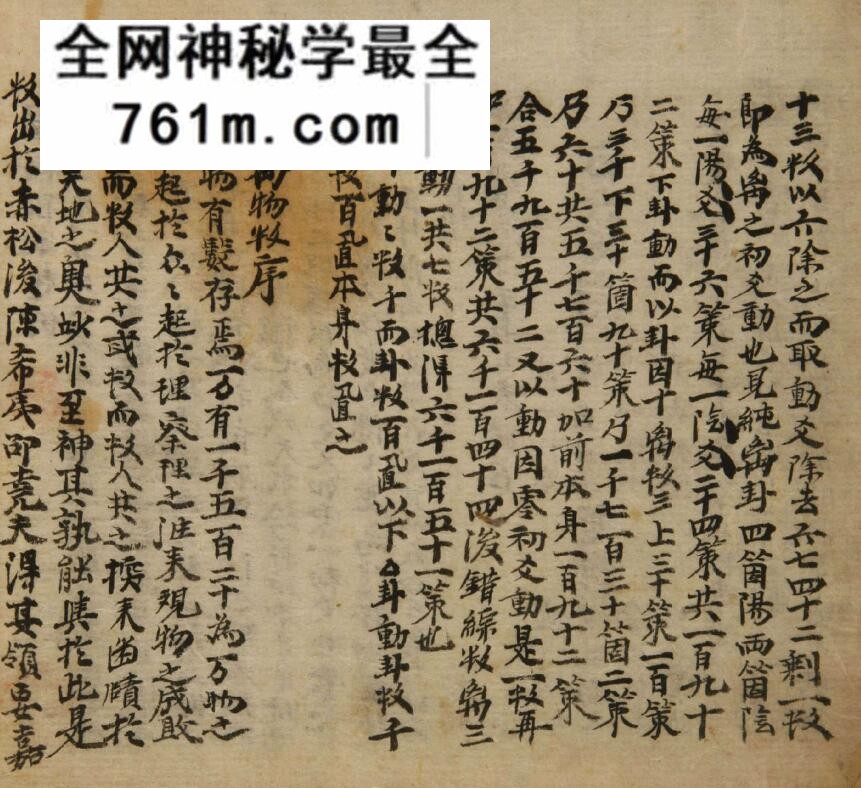 全网神秘学最全
761m.com
十三数以六除之而取動爻除去六七四十二剩一数
即為离之初爻動也見純离卦四箇陽兩箇陰
每一陽爻三十六策每一陰爻二十四策共一百九十
二策下卦動而以卦因十离数三上三十策一百策
乃三千下三十箇九十策乃一千七百三十箇二策
乃六十共五千七百六十加前本身一百九十二策
合五千九百五十二又以動因零初爻動是一数再
九十二策共六千一百四十四後錯綜数离三
動一共七数摠得六千一百五十一策也
動〻数千而卦数百直以下卦動卦数千
数百直本身数直之
物数序
物有數存焉万有一千五百二十為万物之
起於〻起於理察理之往来觀物之成敗
而数人共之或数而数人共之探来賾於
天地之奥妙非至神其孰能與於此是
数出於赤松後陳希夷邵堯夫得其領要嘉